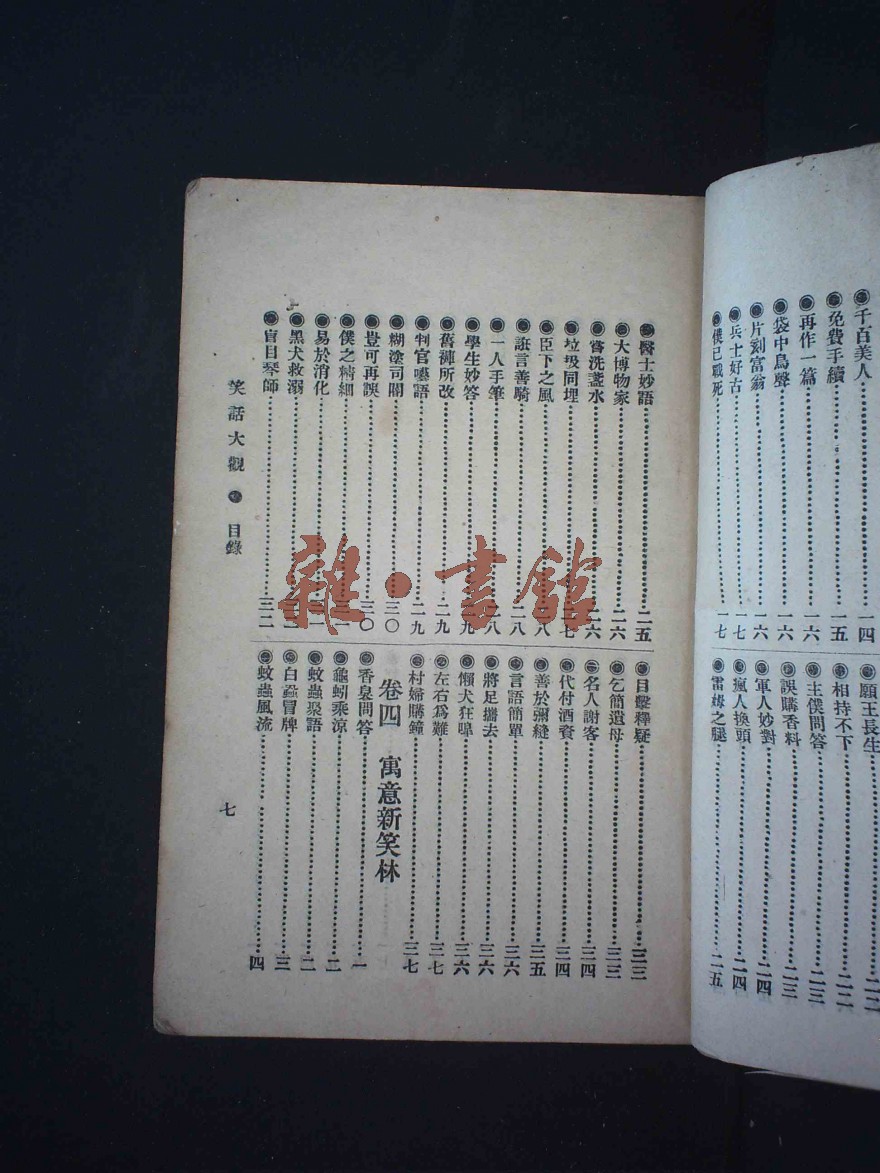 千百美人 一四
免費手續 一五
再作一篇 一六
袋中鳥聲 一六
片刻富翁 一六
兵士好古 一七
僕已戰死 一七
願王長生 二二
相持不下 二二
主僕問答 二三
誤購香料 二三
軍人妙對 二四
瘋人換頭 二四
雷姆之腿 二五
醫士妙語 二五
大博物家 二六
嘗洗盞水 二六
垃圾同埋 二七
臣下之風 二八
誑言善騎 二八
一人手筆 二八
學生妙答 二九
舊褲所改 二九
判官囈語 二九
糊塗司閽 三〇
豈可再誤 三〇
僕之精細 三一
易於消化 三一
黑犬救溺
盲目琴師 三二
目擊釋疑 三三
乞簡遺母 三三
名人謝客 三四
代付酒資 三四
善於彌縫 三五
言語簡單 三六
將足攜去 三六
懶犬狂嘷 三六
左右爲難 三七
村婦購鐘 三七
卷四 寓意新笑林
香臭問答 一
龜蚓乘涼 二
蚊蟲聚語 二
白蝨冒牌 三
蚊蟲風流 四
笑話大觀 目錄
七
雜·書館